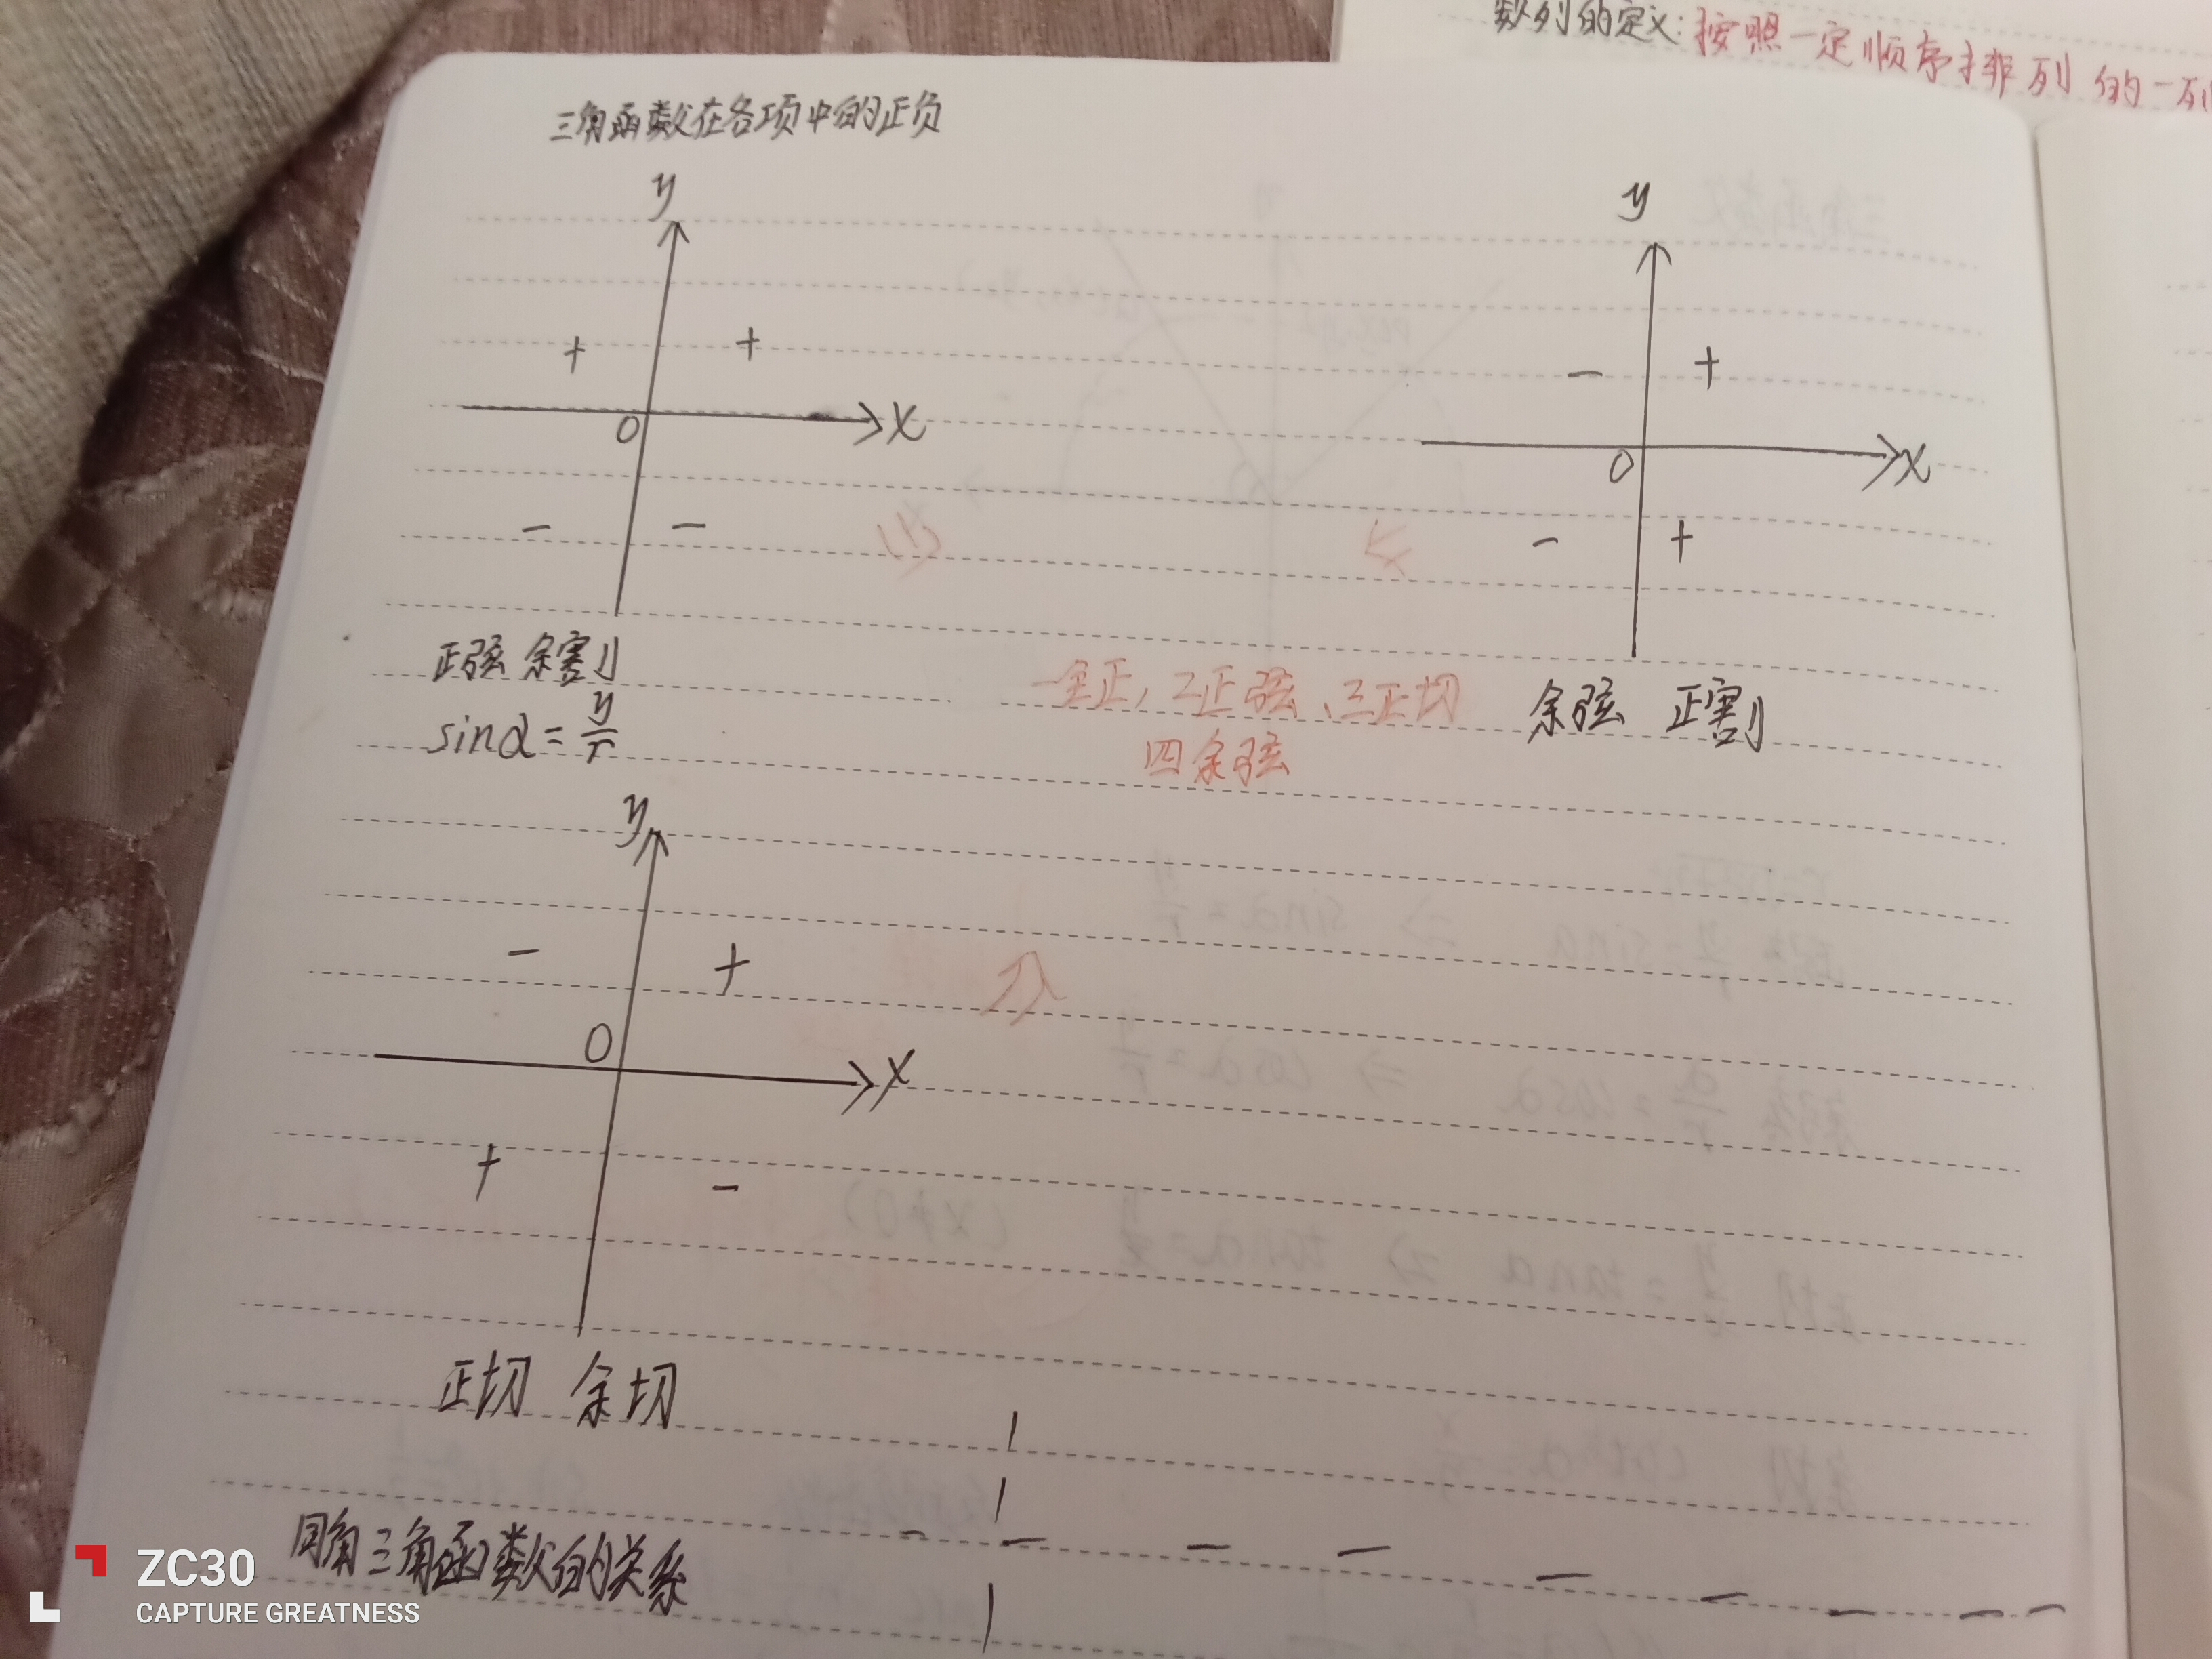 数列的定义：按照一定顺序排列的一列
三角函数在各项中的正负
y
y
+ +
- +
0 x
0 x
- -
- +
正弦 余割
一全正，二正弦、三正切
余弦 正割
sinα=y/r
四余弦
y
- +
0
x
+ -
正切 余切
同角三角函数的关系
ZC30
CAPTURE GREATNESS